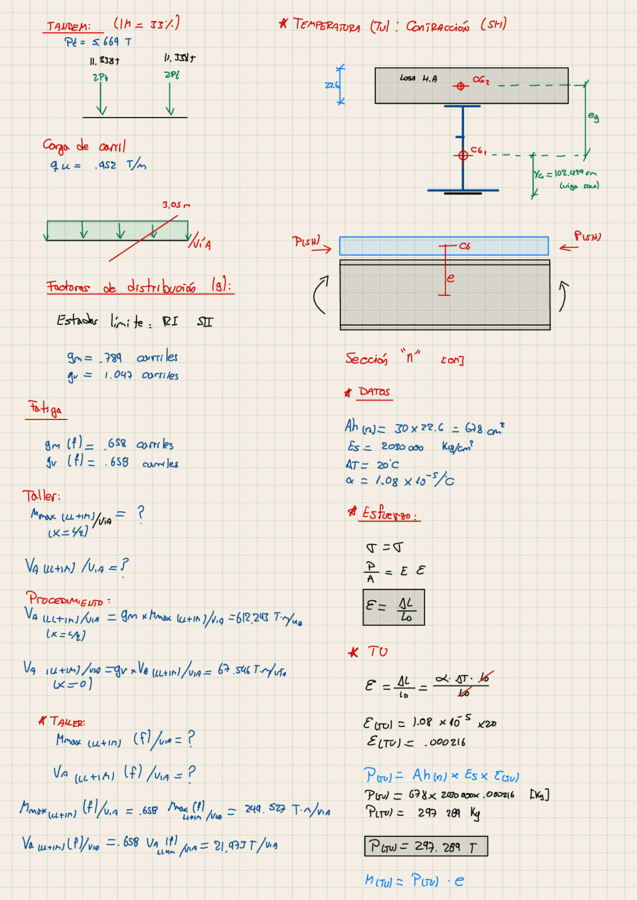 TANDEM: (IM = 33%)
Pt = 5.669 T
11.338T 11.338T
2Pt 2Pt
Carga de carril
qu = .952 T/m
3,05m
/VíA
Factores de distribución (g):
Estados límite: RI SII
gm = .789 carriles
gv = 1.047 carriles
Fatiga
gm (f) = .658 carriles
gv (f) = .658 carriles
Taller:
Mmax (LL+IM)/VIA = ?
(x = L/2)
VA (LL+IM) /VIA = ?
PROCEDIMIENTO:
VA (LL+IM)/VIA = gm x Mmax (LL+IM)/VIA = 612.243 T-m/VIA
(x = L/2)
VA (LL+IM)/VIA = gv x VA (LL+IM)/VIA = 67.546 T-m/VIA
(x = 0)
* TALLER:
Mmax (LL+IM) (f) /VIA = ?
VA (LL+IM) (f) /VIA = ?
Mmax (LL+IM) (f) /VIA = .658 Mmax (f) LL+IM /VIA = 249.527 T-m/VIA
VA (LL+IM) (f) /VIA = .658 VA (f) LL+IM /VIA = 21.973 T/VIA
* TEMPERATURA (TU): CONTRACCIÓN (SH)
LOSA H.A
CG2
22.6
eg
CG1
YG = 102.479 cm
(viga sola)
P(SH) CG P(SH)
e
Sección "n" [cm]
* DATOS
Ah (n) = 30 x 22.6 = 678 cm²
Es = 2030000 Kg/cm²
ΔT = 20°C
α = 1.08 x 10⁻⁵/C
* Esfuerzo:
σ = σ
P/A = E ε
ε = ΔL/Lo
* TU
ε = ΔL/Lo = α · ΔT · Lo/Lo
ε(TU) = 1.08 x 10⁻⁵ x20
ε(TU) = .000216
P(TU) = Ah(n) x Es x ε(TU)
P(TU) = 678 x 2030000 x .000216 [Kg]
P(TU) = 297 289 Kg
P(TU) = 297.289 T
M(TU) = P(TU) · e